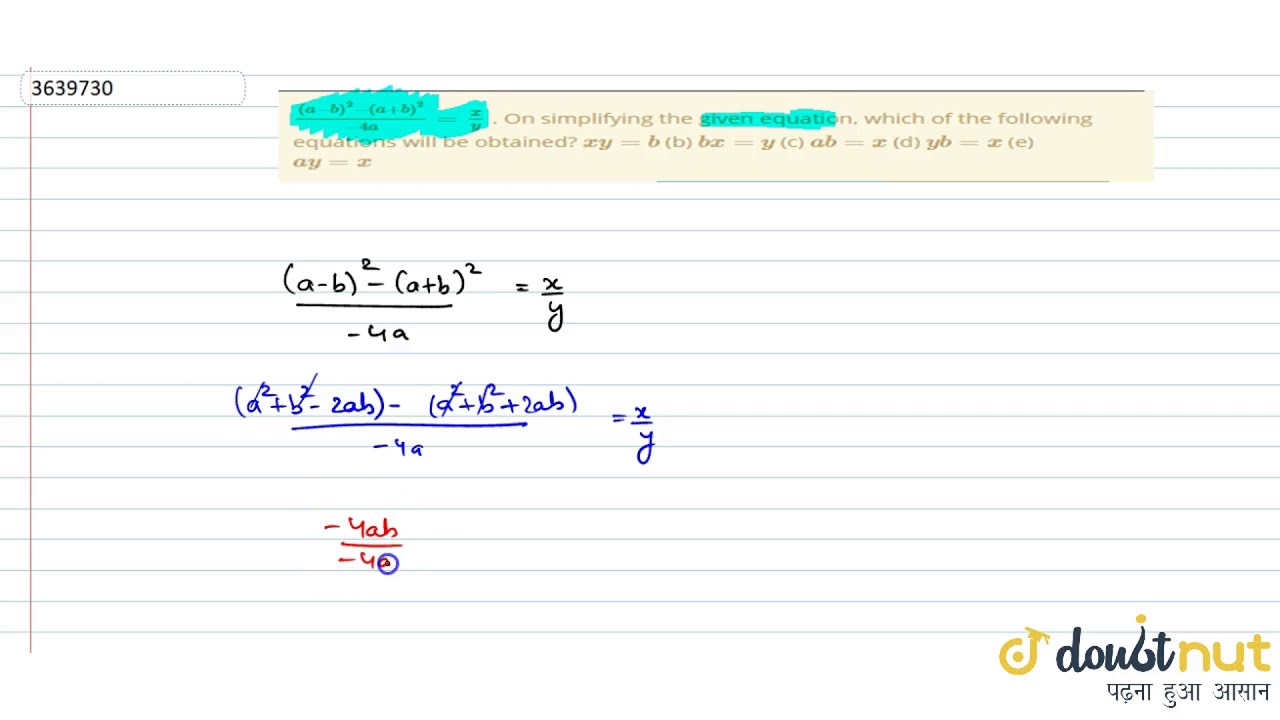 3639730
(a−b)²−(a+b)² / −4a = x/y . On simplifying the given equation, which of the following
equations will be obtained? xy = b (b) bx = y (c) ab = x (d) yb = x (e)
ay = x
(a-b)² - (a+b)² / -4a = x/y
(a²+b²-2ab) - (a²+b²+2ab) / -4a = x/y
-4ab / -4a
doubtnut
पढ़ना हुआ आसान